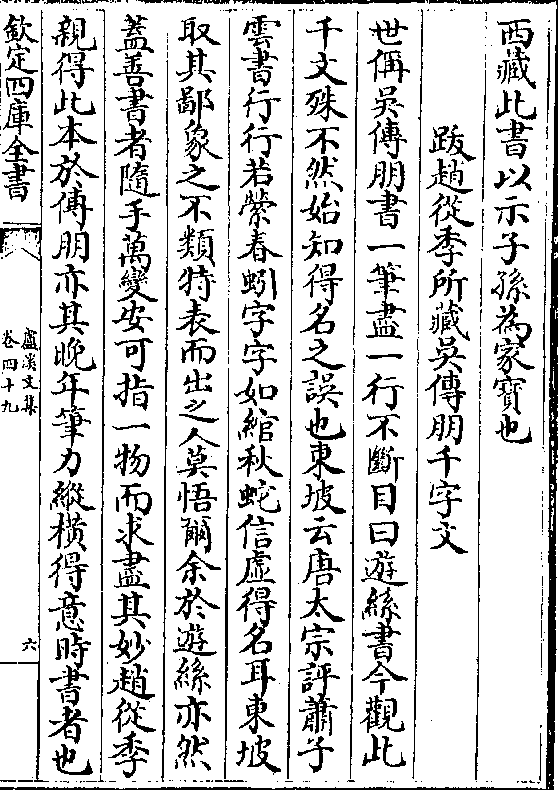 西藏此書以示子孫為家寳也
跋趙從季所藏吳傅朋千字文
世偁吳傅朋書一筆盡一行不斷目曰遊絲書今觀此
千文殊不然始知得名之誤也東坡云唐太宗評蕭子
雲書行行若縈春蚓字字如綰秋蛇信虛得名耳東坡
取其鄙象之不類特表而出之人莫悟爾余於遊絲亦然
蓋善書者隨手萬變安可指一物而求盡其妙趙從季
親得此本於傅朋亦其晚年筆力縱橫得意時書者也
欽定四庫全書
盧溪文集
卷四十九
六